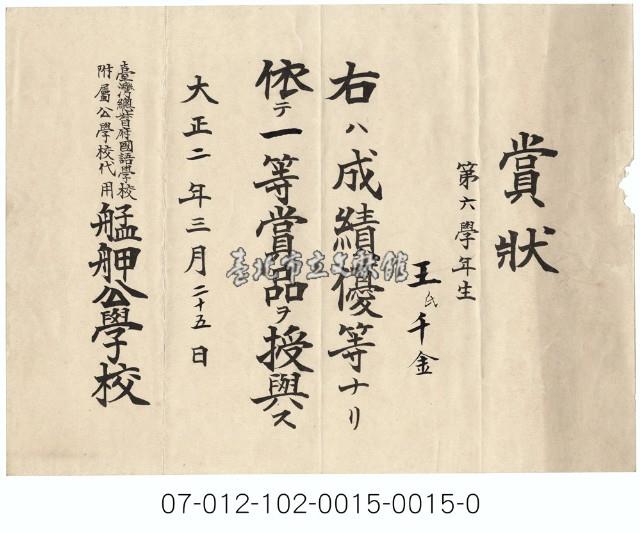 賞狀
第六學年生
王氏千金
右ハ成績優等ナリ
依テ一等賞品ヲ授與ス
大正二年三月二十五日
臺灣總督府國語學校
附屬公學校代用
艋舺公學校
臺北市立文獻館
07-012-102-0015-0015-0